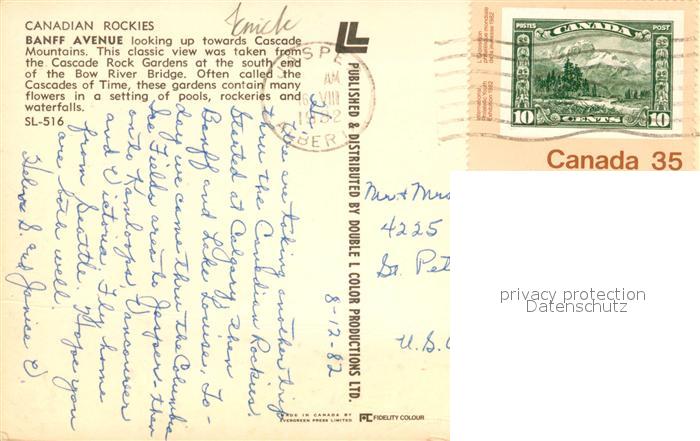 CANADIAN ROCKIES
BANFF AVENUE looking up towards Cascade
Mountains. This classic view was taken from
the Cascade Rock Gardens at the south end
of the Bow River Bridge. Often called the
Cascades of Time, these gardens contain many
flowers in a setting of pools, rockeries and
waterfalls.
SL-516
AM
VIII
1982
PUBLISHED & DISTRIBUTED BY DOUBLE L COLOR PRODUCTIONS LTD.
MADE IN CANADA BY
EVERGREEN PRESS LIMITED
FC FIDELITY COLOUR
L'Exposition
philatélique mondiale
de la jeunesse 1982
International
Philatelic Youth
Exhibition 1982
POSTES CANADA POST
10 CENTS 10
Canada 35
8-12-82
We are taking another trip
thru the Canadian Rockies.
Started at Calgary, then
Banff and Lake Louise. To-
day we came thru the Columbia
Ice Fields area to Jasper - then
onto Kamloops, Vancouver
and Victoria. Fly home
from Seattle. Hope you
are both well.
and Janice
Mr & Mrs
4225
St. Pet
U.S.
privacy protection
Datenschutz